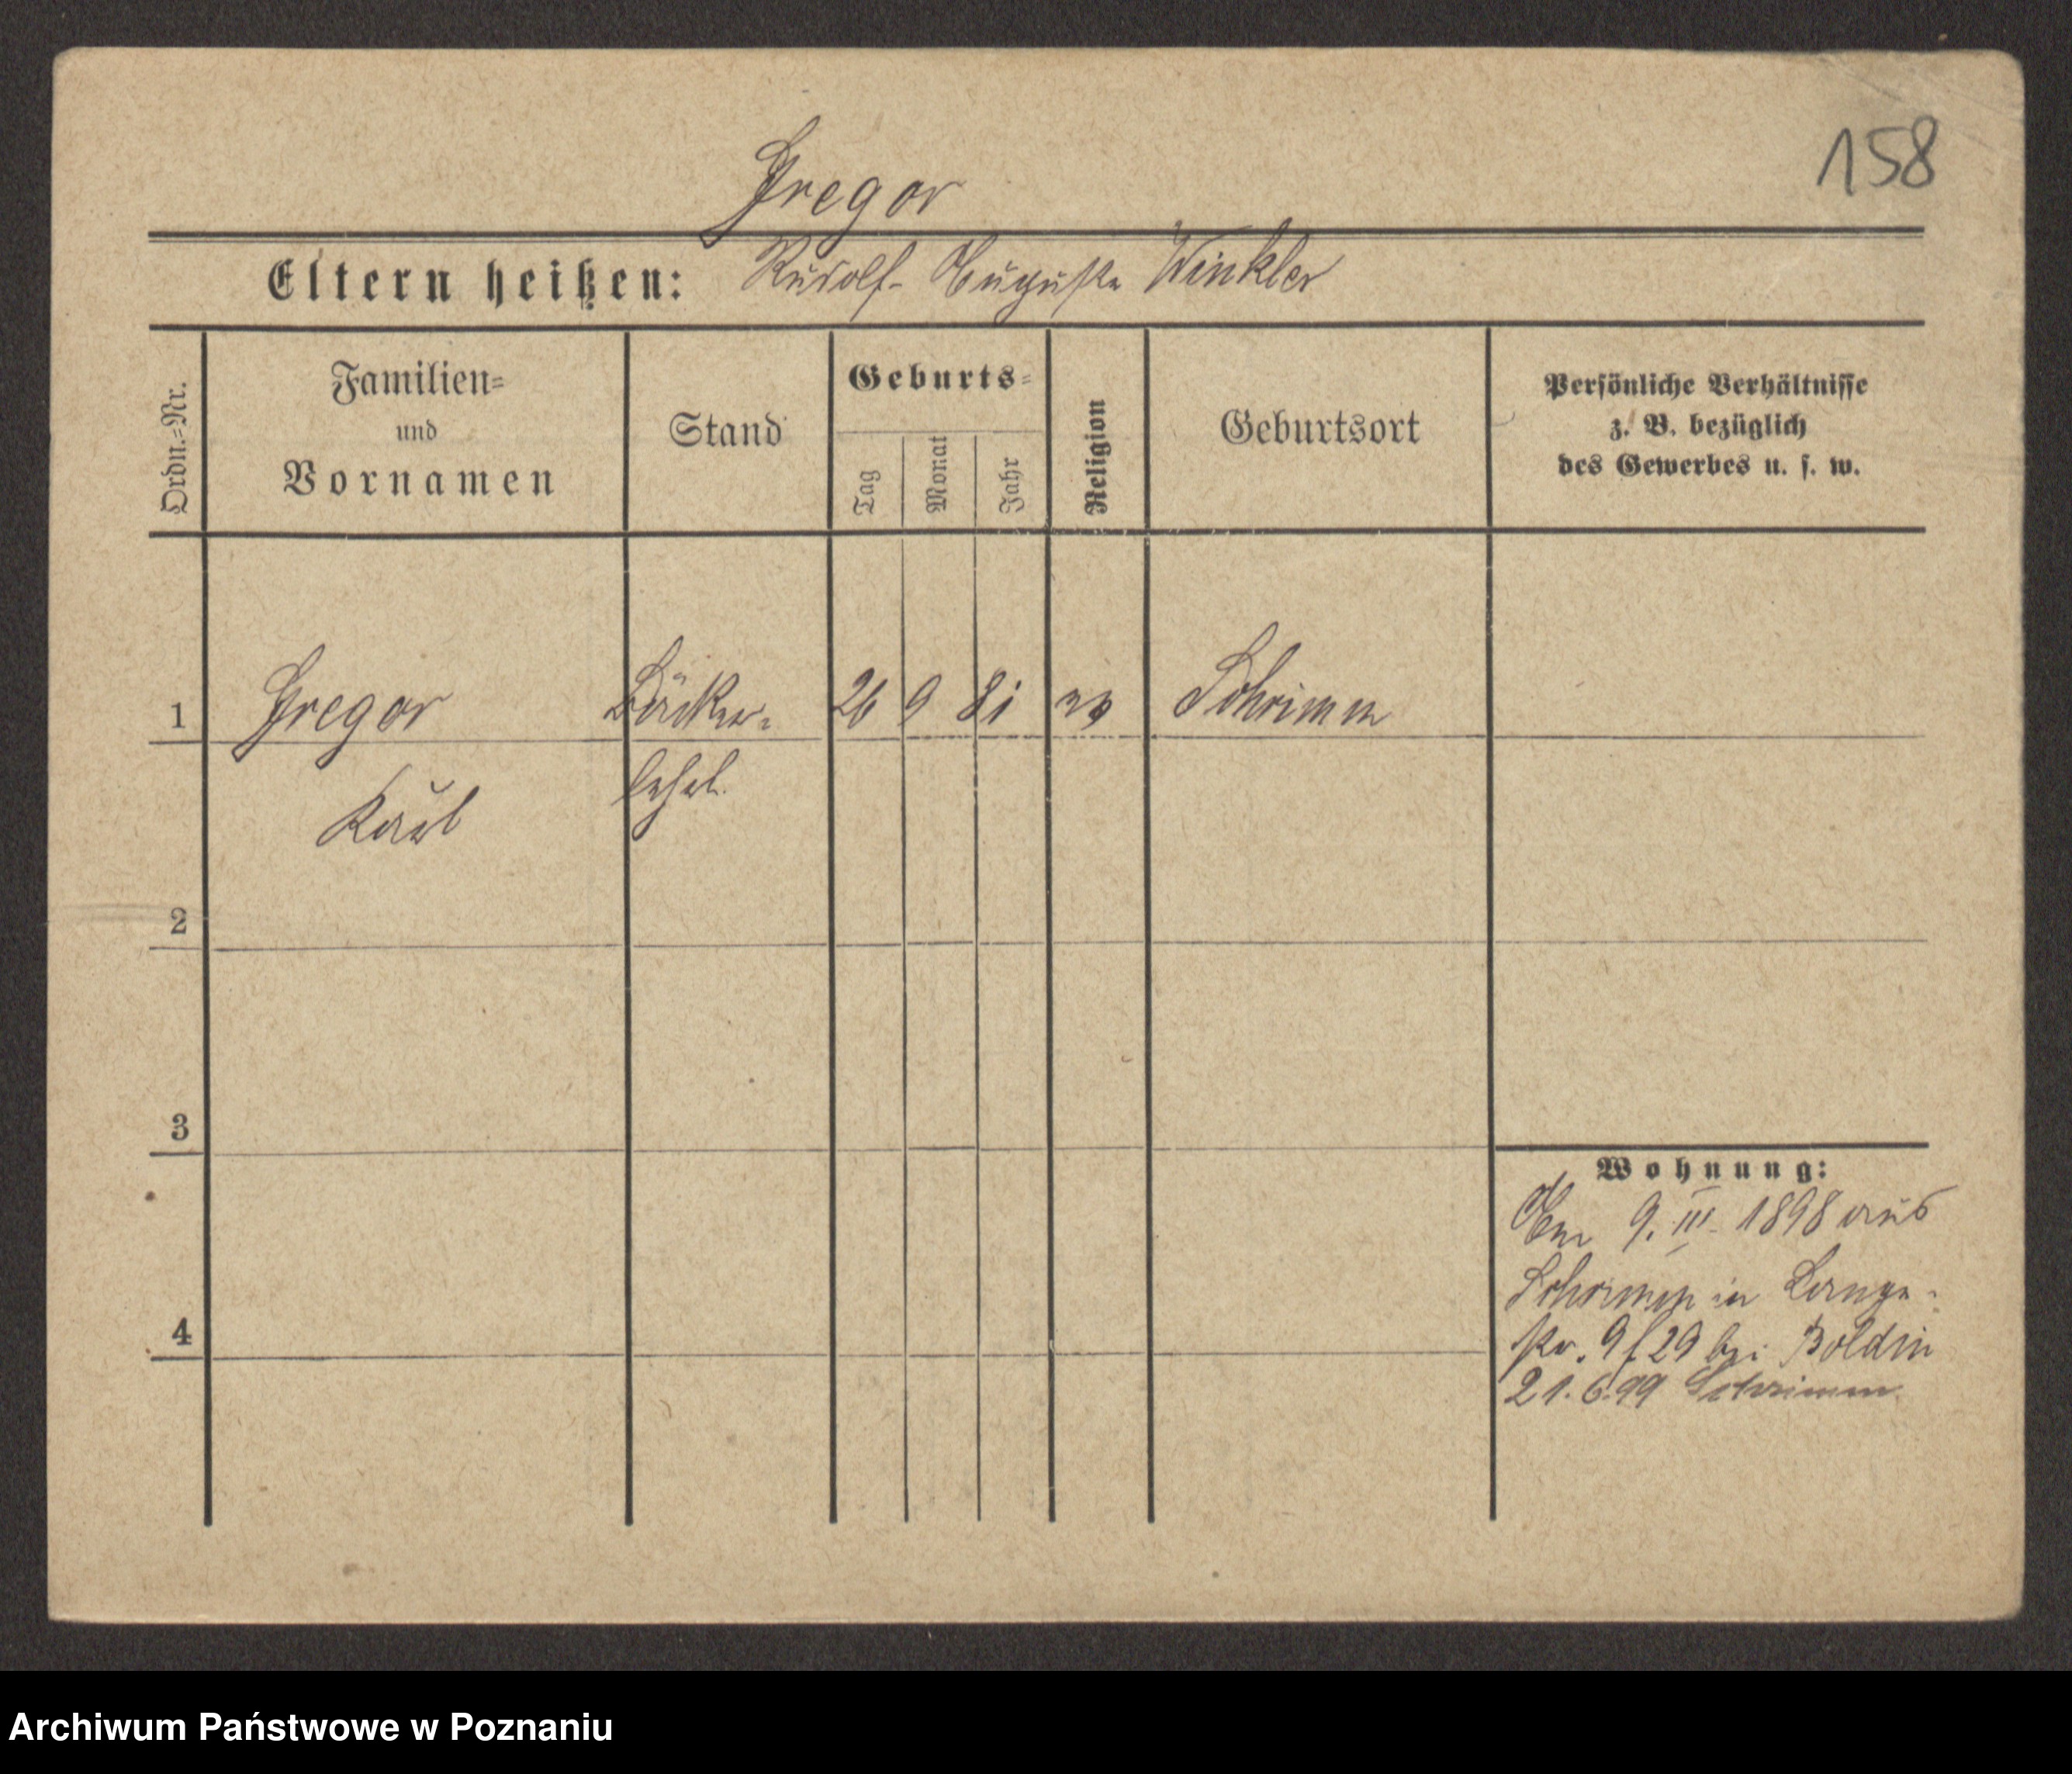 158
Gregor
Eltern heißen: Rudolf - Auguste Winkler
Ordn.-Nr.
Familien-
und
Vornamen
Stand
Geburts-
Tag
Monat
Jahr
Religion
Geburtsort
Persönliche Verhältnisse
z. B. bezüglich
des Gewerbes u. s. w.
1 Gregor Bäcker- 26 9 81 ev Schrimm
lehrl.
2
3
4
Wohnung:
Am 9. III. 1898 aus
Schrimm in Lange-
str. 9 f 29 bei Boldin
21.6.99 Schrimm
Archiwum Państwowe w Poznaniu